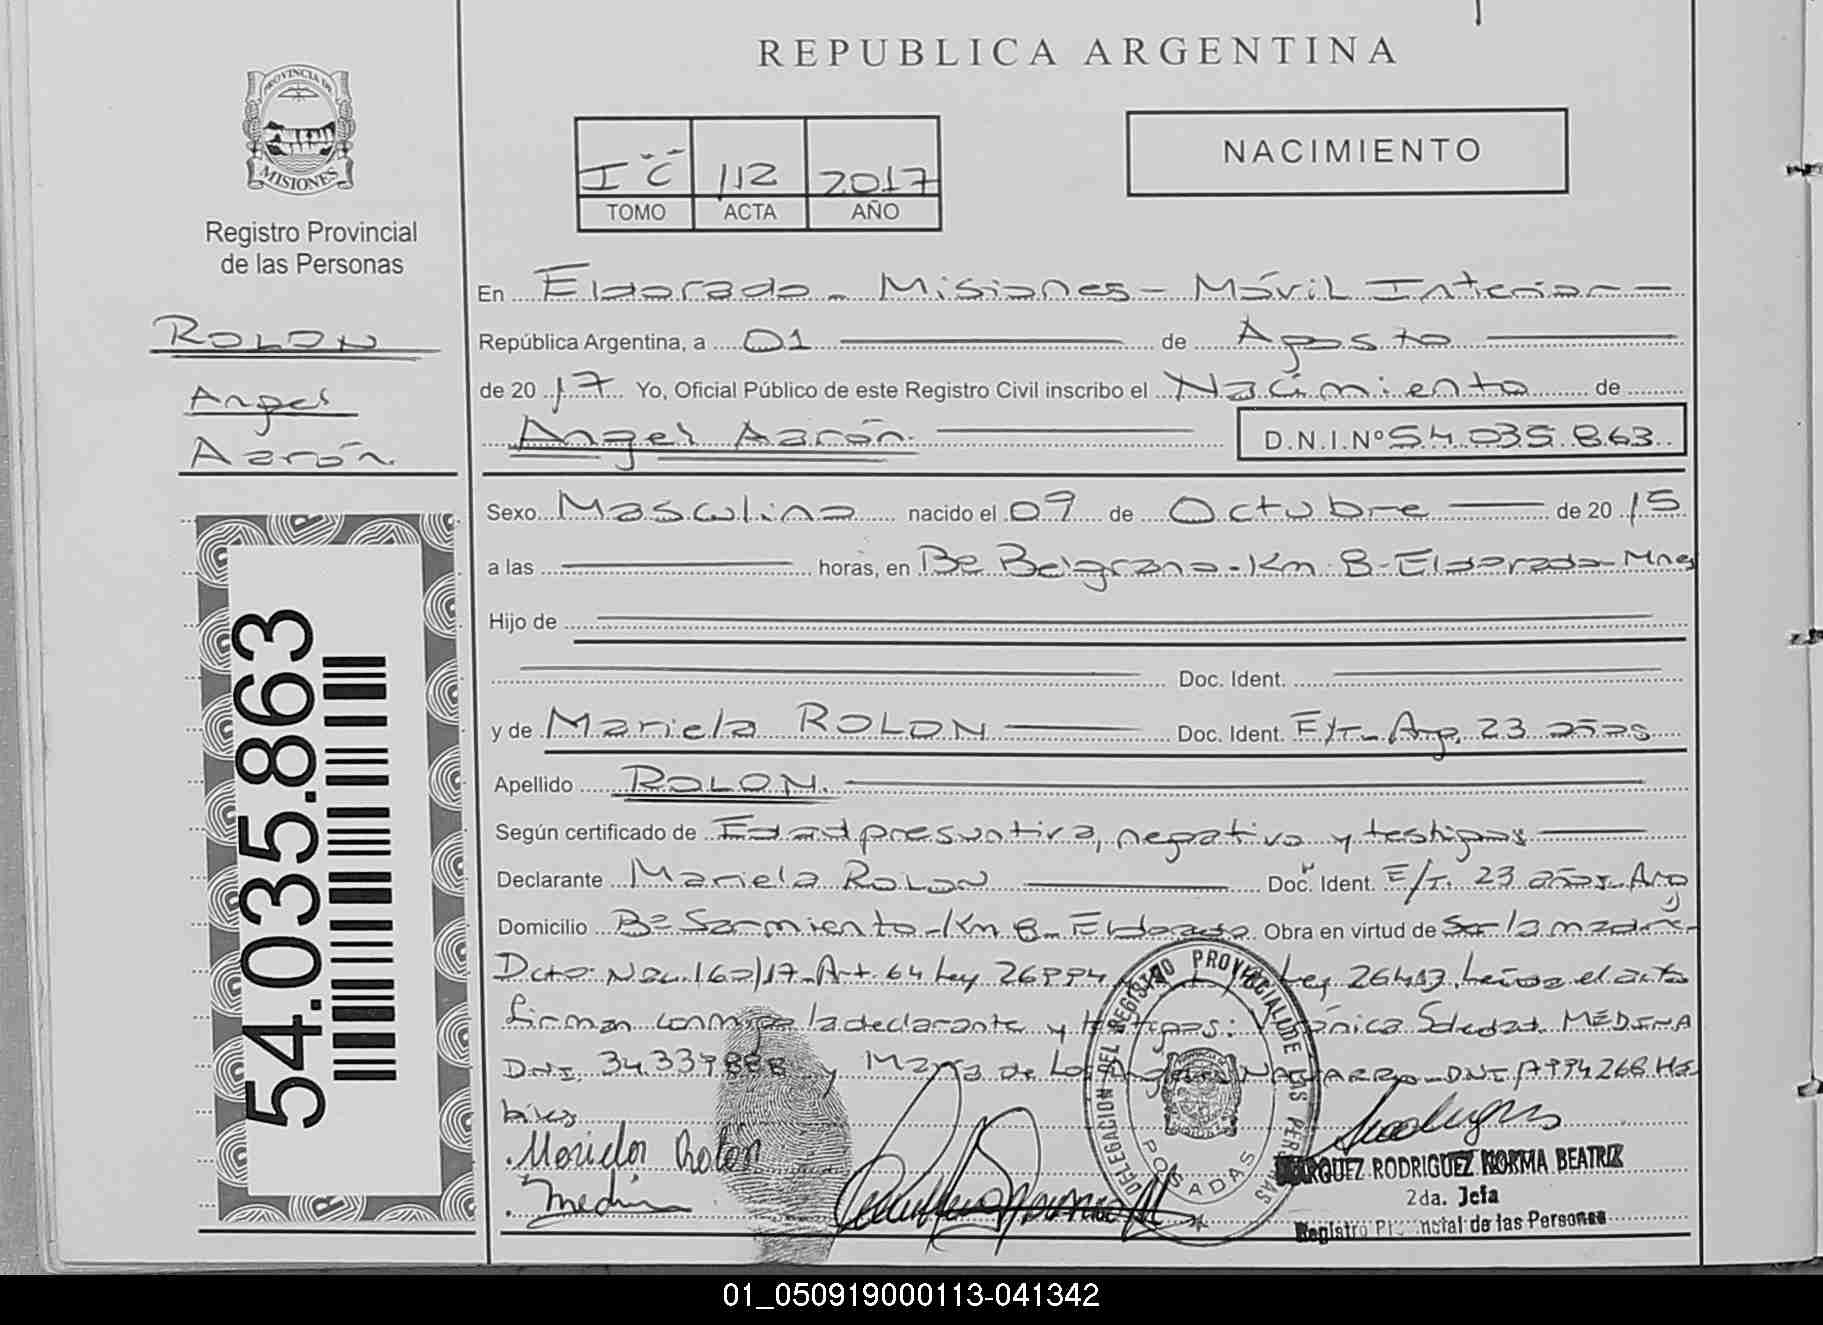 REPUBLICA ARGENTINA
PROVINCIA DE
MISIONES
Registro Provincial
de las Personas
I C 112 2017
TOMO ACTA AÑO
NACIMIENTO
ROLON
Angel
Aarón
54.035.863
En Eldorado - Misiones - Móvil Interior -
República Argentina, a 01 de Agosto
de 20 17 Yo, Oficial Público de este Registro Civil inscribo el Nacimiento de
Angel Aarón. D.N.I.Nº 54.035.863
Sexo Masculino nacido el 09 de Octubre de 20 15
a las horas, en Bº Belgrano - Km. 8 - Eldorado - Mnes
Hijo de
Doc. Ident.
y de Mariela ROLON Doc. Ident. E/T. Arg. 23 años
Apellido ROLON.
Según certificado de Edad presuntiva, negativo y testigos
Declarante Mariela ROLON Doc. Ident. E/T. 23 años. Arg
Domicilio Bº Sarmiento - Km 8 - Eldorado Obra en virtud de Ser la madre -
Dcto. 160/17 - Art. 64 Ley 26994 Ley 26413, el acto
firman conmigo la declarante y testigos: Soledad MEDINA
DNI. 34.339.888 y María de Los NAVARRO - DNI
biles
Mariela Rolón
Medina
DELEGACION DEL REGISTRO PROVINCIAL DE LAS PERSONAS
POSADAS
MARQUEZ RODRIGUEZ NORMA BEATRIZ
2da. Jefa
Registro Provincial de las Personas
01_050919000113-041342